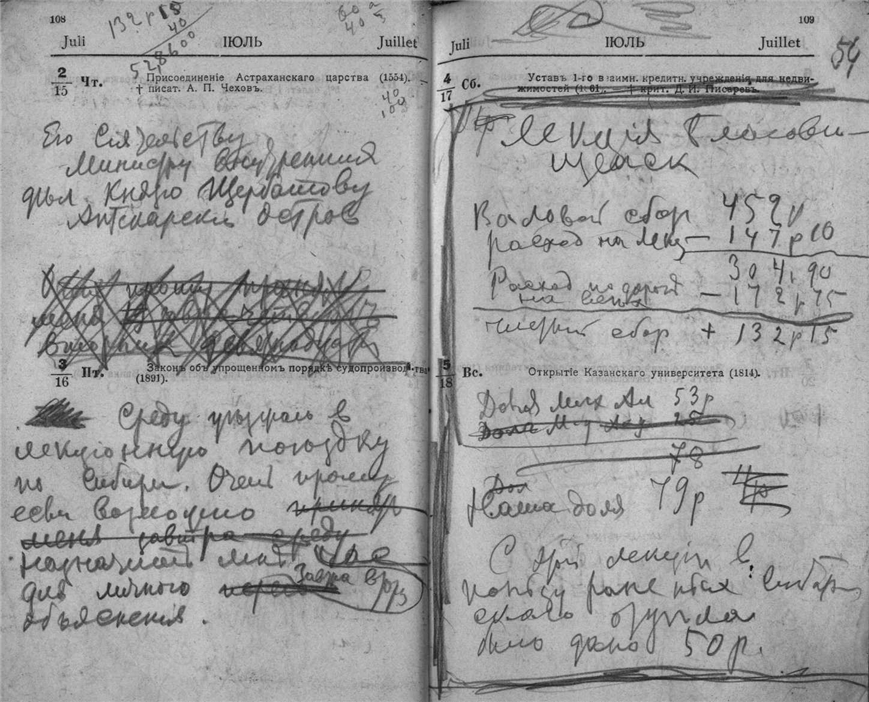 108
132 р 15
40
528600
60
40 3
Juli ІЮЛЬ Juillet
2/15 Чт. Присоединеніе Астраханскаго царства (1554).
† писат. А. П. Чеховъ.
40
Его Сіятельству
Министру Внутренния
дѣл. Князю Щербатову
Аптекарскій остров
прошу принят
меня
Вторник
3/16 Пт. Законъ объ упрощенномъ порядкѣ судопроизводства
(1891).
Среду уѣзжаю в
лекционную поѣздку
по Сибири. Очень прошу
если возможно
меня завтра среду
назначить мнѣ час
для личного Завтра
объяснения.
109
Juli ІЮЛЬ Juillet
54
4/17 Сб. Уставъ 1-го взаимн. кредитн. учрежденія для недви-
жимостей (1861). † крит. Д. И. Писаревъ.
Лекція Благовѣ-
щенск
Валовой сбор 452 р
расход на лекц — 147 р 10
304, 90
Расход по дороге — 172 р 75
чистый сбор + 132 р 15
5/18 Вс. Открытіе Казанскаго университета (1814).
53 р
25
78
Наша доля 79 р
С этой лекции в
пользу раненых Сибир
ского
было дано 50 р.